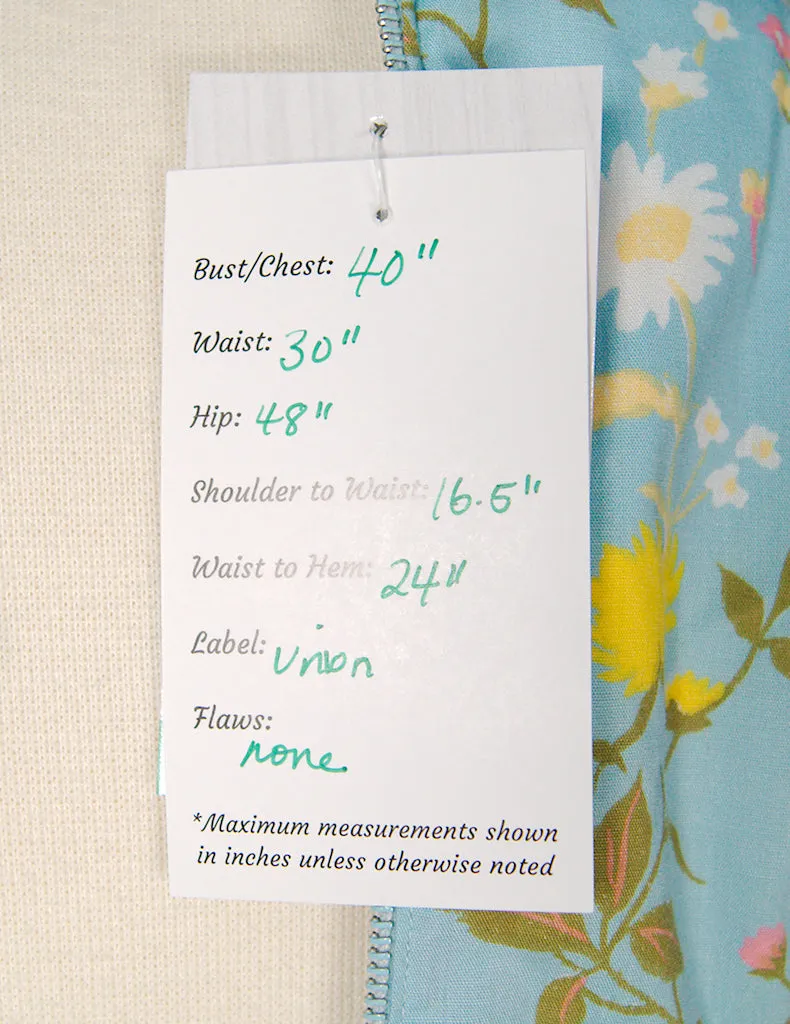 Bust/Chest: 40"
Waist: 30"
Hip: 48"
Shoulder to Waist: 16.5"
Waist to Hem: 24"
Label: Union
Flaws:
none
*Maximum measurements shown
in inches unless otherwise noted